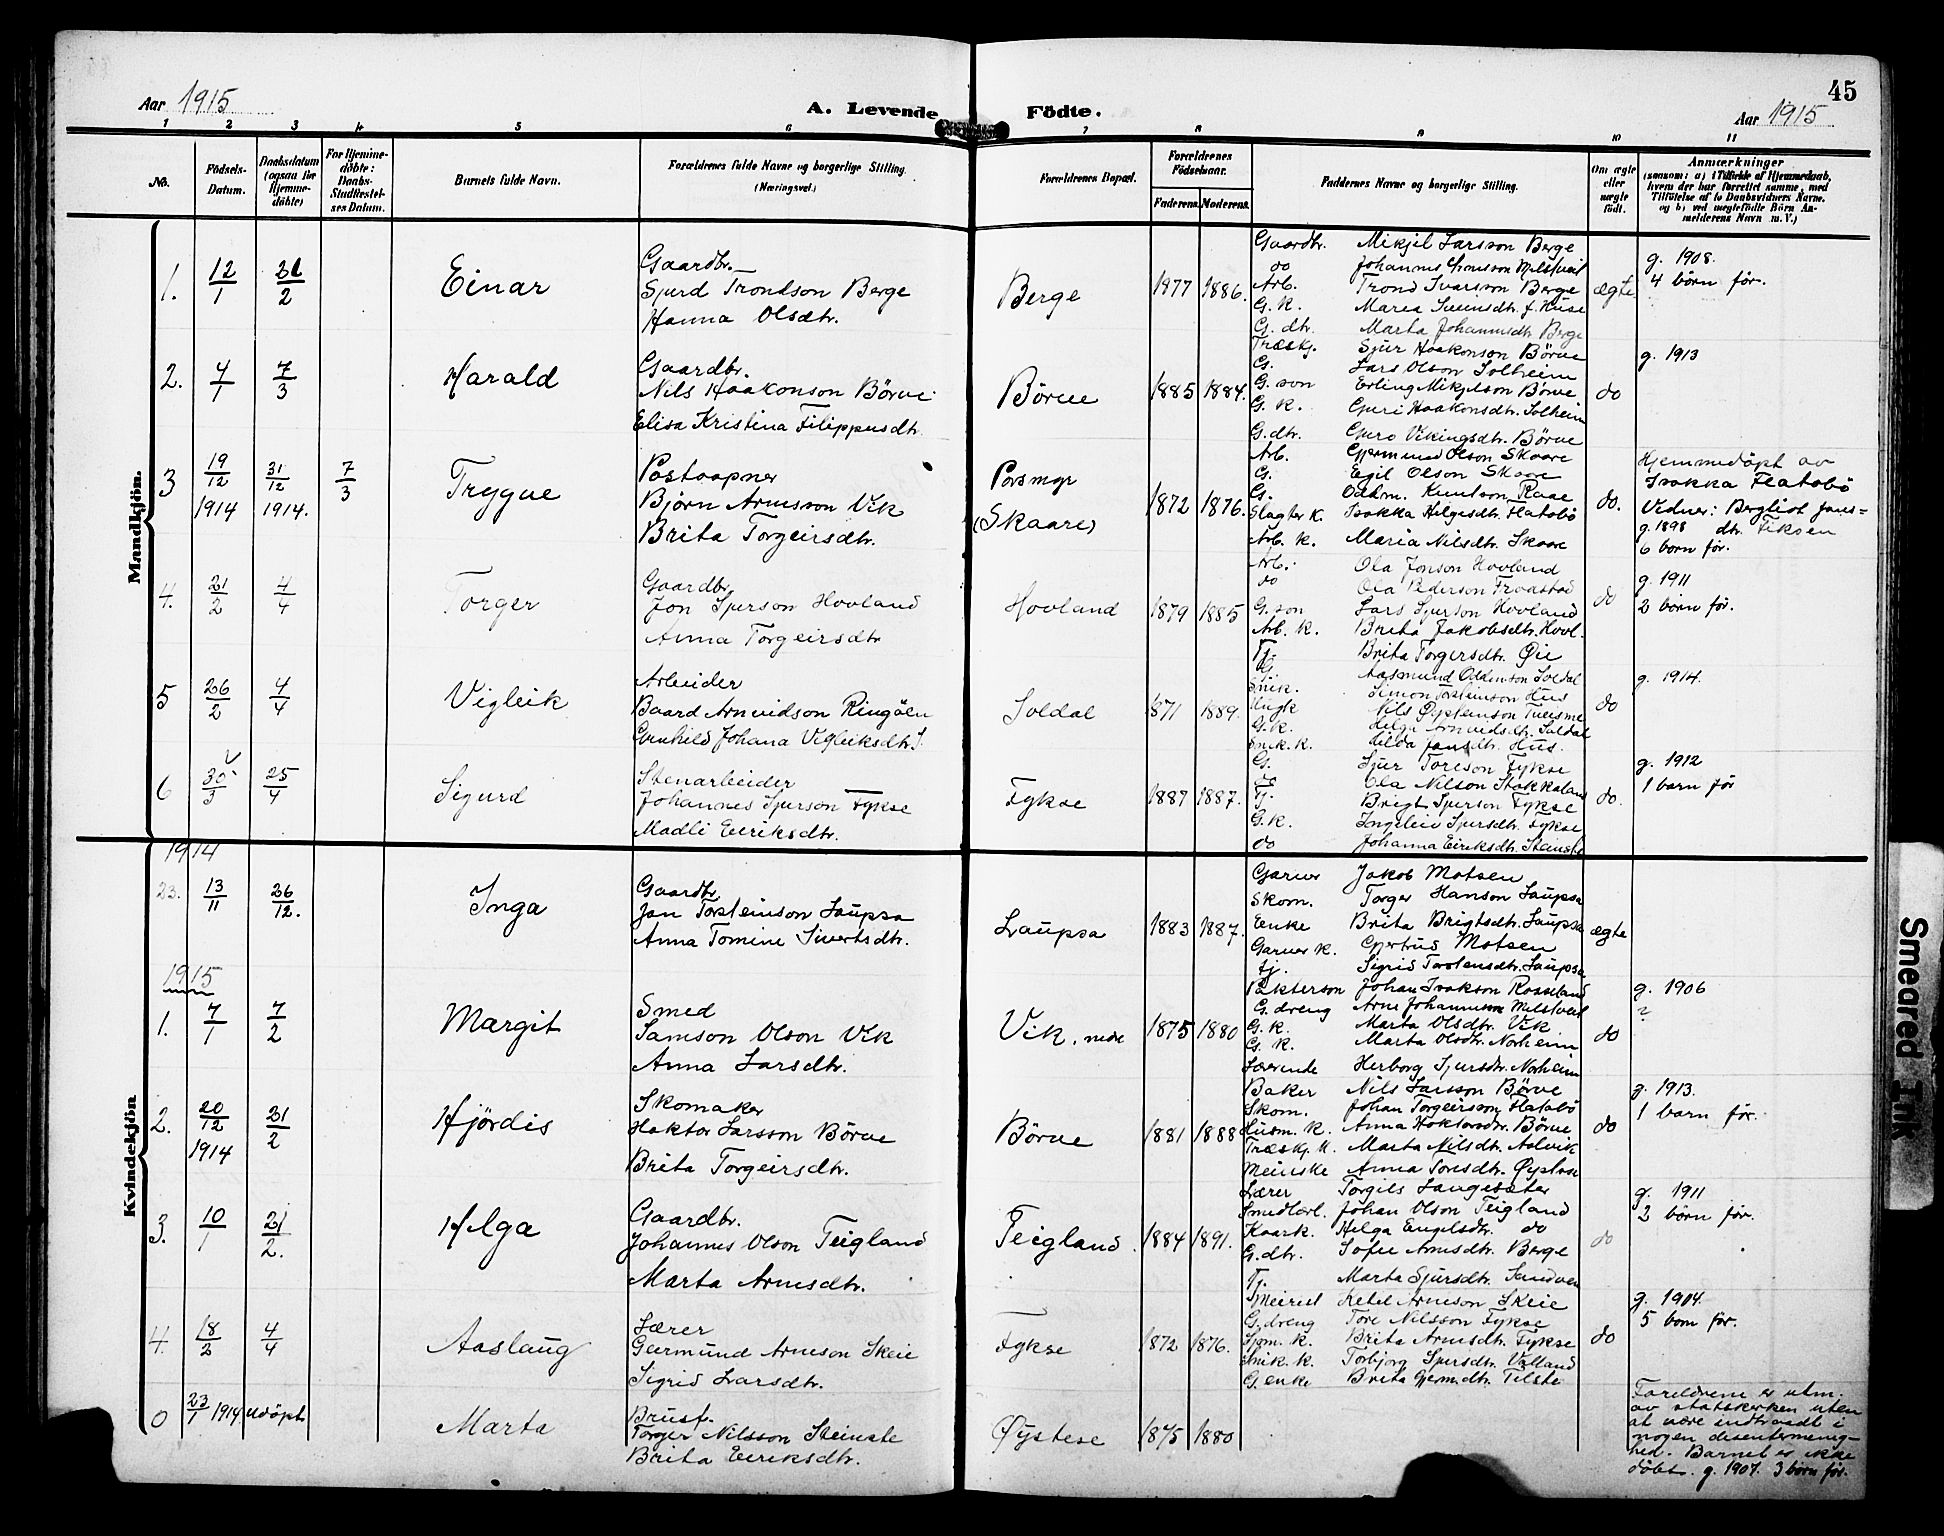 45
Aar 1915
A. Levende Födte.
Aar 1915
1 2 3 4 5 6 7 8 9 10 11
No.
Födsels-Datum.
Daabsdatum (ogsaa for Hjemme-döbte)
For Hjemme-döbte: Daabs-Stadfæstel-ses Datum.
Barnets fulde Navn.
Forældrenes fulde Navne og borgerlige Stilling. (Næringsvei.)
Forældrenes Bopæl.
Forældrenes Födselsaar.
Faderens. Moderens.
Faddernes Navne og borgerlige Stilling.
Om ægte eller uægte födt.
Anmærkninger
(saasom: a) i Tilfælde af Hjemmedaab, hvem der har forrettet samme, med Tilföielse af to Daabsvidners Navne, og b) ved uægtefödte Börn An-melderens Navn m. V.)
Mandkjön.
1. 12/1 21/2 Einar
Gaardbr.
Sjurd Trondson Berge
Hanna Olsdtr.
Berge 1877 1886.
Gaardbr. Mikjel Larsson Berge
do Johannes
Arb. Trond Ivarsson Berge
G. K. Maria Sveinsdtr. f. Huse
G. dtr. Marta Johannesdtr Berge
ægte
g. 1908.
4 börn för.
2. 4/1 7/3 Harald
Gaardbr.
Nils Haakonson Börve
Elisa Kristina Filippusdtr.
Börve 1885 1884.
Træskj. Sjur Haakonson Börve
G. Lars Olson Solheim
G. son Erling Mikjelson Börve
G. K. Guri Haakonsdtr. Solheim
G. dtr. Guro Vikingsdtr. Börve
do
g. 1913
3 19/12 1914 31/12 1914. 7/3 Trygve
Postaapner
Björn Arnesson Vik
Brita Torgeirsdtr.
Porsmyr (Skaare) 1872 1876.
Arb. Gjermund Olson Skaare
G. Egil Olson Skaare
G. Odtm. Knutson Raae
Slagter K. Isakka Helgesdtr. Flatabö
Arb. K. Maria Nilsdtr. Skaare
do.
Hjemmedöpt av
Isakka Flatabö
Vidner: Bergliot Jans=
g. 1898 dtr. Fiksen
6 born för.
4. 21/2 4/4 Torger
Gaardbr.
Jon Sjurson Hovland
Anna Torgeirsdtr
Hovland 1879 1885
Arb. Ola Jonson Hovland
do Ola Pederson
G. son Lars Sjurson Hovland
Arb. K. Brita Jakobsdtr. Hovl.
Tj. Brita Torgersdtr. Øie
do
g. 1911
2 börn för.
5 26/2 4/4 Vigleik
Arbeider
Baard Arnvidson Ringöen
Gunhild Johana Vigleiksdtr. S.
Soldal 1871 1889.
G. Aasmund Oddmson Soldal
Snik. Simon Torsteinson Hus
Ungk Nils Øysteinson
G. K. Helga Arnvidsdtr. Soldal
Snik. K. Hilda Jansdtr. Hus.
do
g. 1914.
6 30/3 25/4 Sigurd
Stenarbeider
Johannes Sjurson Fykse
Madli Eeriksdtr.
Fykse 1887 1887.
G. Sjur Toreson Fykse
do Ola Nilson Stakkaland
Tj. Brigt Sjurson Fykse
G. K. Ingeleiv Sjursdtr. Fykse
do Johanna Eiriksdtr. Steinste
do.
g. 1912
1 barn för
Kvindekjön
1914
23. 13/11 26/12. Inga
Gaardbr.
Jan Torsteinson Laupsa
Anna Tomine Sivertsdtr.
Laupsa 1883 1887.
Garver Jakob Motsen
Skom. Torger Hanson Laupsa
Enke Brita Brigtsdtr. Laupsa
Garver K. Gjertrud Motsen
Tj. Sigrid Torstensdtr. Laupsa
ægte
1915
1. 7/1 7/2 Margit
Smed
Samson Olson Vik
Anna Larsdtr.
Vik, nedr 1875 1880
Pakterson Johan Isakson Rosseland
G. dreng Arne Johannesson
G. K. Marta Olsdtr. Vik
G. K. Marta Olsdtr. Norheim
Lærerinde Herborg Sjursdtr. Norheim
do
g. 1906
?
2. 20/12 1914 21/2 Hjördis
Skomaker
Haktor Larsson Börve
Brita Torgeirsdtr.
Börve 1881 1888
Baker Nils Larsson Börve
Skom. Johan Torgeirson Flatabö
Husm. K. Anna Haktorsdtr. Börve
Træskj. K. Marta Nilsdtr. Aalvik
Meierske Anna Toresdtr. Øystese
do
g. 1913.
1 barn för.
3. 10/1 21/2. Helga
Gaardbr.
Johannes Olson Teigland
Marta Arnesdtr.
Teigland 1884 1891.
Lærer Torgils Langesæter
Smedlærl. Johan Olson Teigland
Kaark. Helga Engelsdtr. do
G. dtr. Sofie Arnesdtr. Berge
Tj. Marta Sjursdtr. Sandven
do
g. 1911
2 börn för.
4. 18/2 4/4 Aaslaug
Lærer
Germund Arneson Skeie
Sigrid Larsdtr.
Fykse 1872 1876.
Meirist Ketel Arneson Skeie
G. dreng Tore Nilsson Fykse
Sjöm. K. Brita Arnesdtr. Fykse
Snik. K. Torbjorg Sjursdtr. Valland
G. enke Brita Gjerm.dtr. Tilste
do
g. 1904.
5 born för.
0 23/1 1914. udöpt Marta
Brusf.
Torger Nilsson Steinste
Brita Eeriksdtr.
Øystese 1875 1880
Foreldrene er utm.
av statskirken uten
at være indtraadt i
nogen dissentermenig-
hed. Barnet er ikke
döbt. g. 1907. 3 börn för.
Smeared Ink